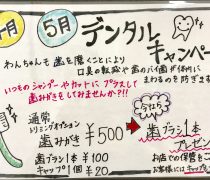 月 5月 デンタル
キャンペー
わんちゃんも 歯を磨くことにより
口臭の軽減や 歯のバイ菌が体内に
まわるのを防ぎます
いつものシャンプーやカットに プラスして
歯みがきをしてみませんか?!!
通常
トリミングオプション
歯みがき ¥500
歯ブラシ1本 ¥100
キャップ1個 ¥20
今なら
歯ブラシ1本
プレゼン
お店での保管をご
お客様には キャップも